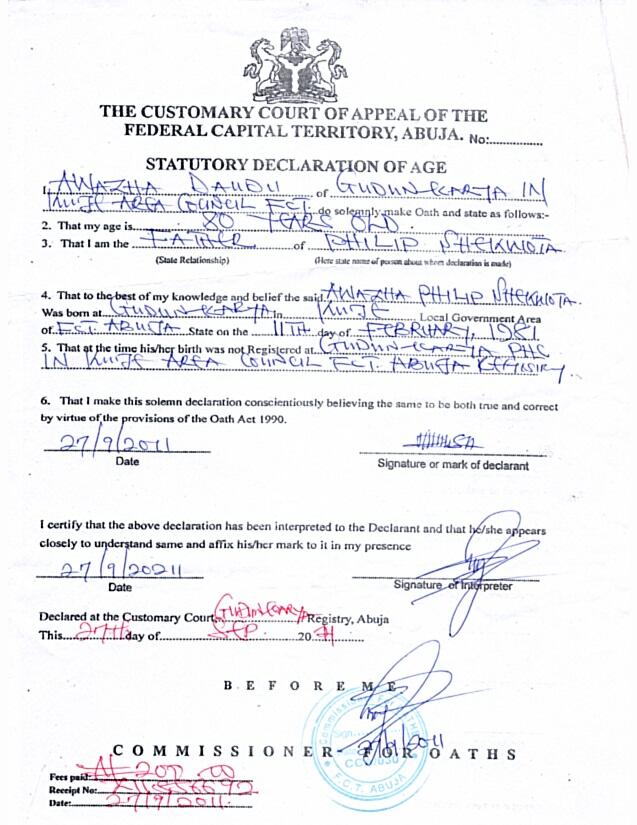 THE CUSTOMARY COURT OF APPEAL OF THE
FEDERAL CAPITAL TERRITORY, ABUJA. No:..............
STATUTORY DECLARATION OF AGE
I, AWAZHA DAUDU of GUDUN-KARYA IN
KUJE AREA COUNCIL FCT. do solemnly make Oath and state as follows:-
2. That my age is 80 YEARS OLD.
3. That I am the FATHER of PHILIP SHEKWOLA
(State Relationship) (Here state name of person about whom declaration is made)
4. That to the best of my knowledge and belief the said AWAZHA PHILIP SHEKWOLA.
Was born at GUDUN-KARYA in KUJE Local Government Area
of F.C.T. ABUJA State on the 11TH day of FEBRUARY, 1981
5. That at the time his/her birth was not Registered at GUDUN-KARYA PHC
IN KUJE AREA COUNCIL FCT. ABUJA REGISTRY.
6. That I make this solemn declaration conscientiously believing the same to be both true and correct
by virtue of the provisions of the Oath Act 1990.
27/9/2011
Date Signature or mark of declarant
I certify that the above declaration has been interpreted to the Declarant and that he/she appears
closely to understand same and affix his/her mark to it in my presence
27/9/2011
Date Signature of Interpreter
Declared at the Customary Court, Registry, Abuja
This 27th day of SEP. 20 11
BEFORE ME
27/9/2011
COMMISSIONER FOR OATHS
F.C.T. ABUJA
Fees paid: ₦ 200.00
Receipt No:
Date: 27/9/2011.